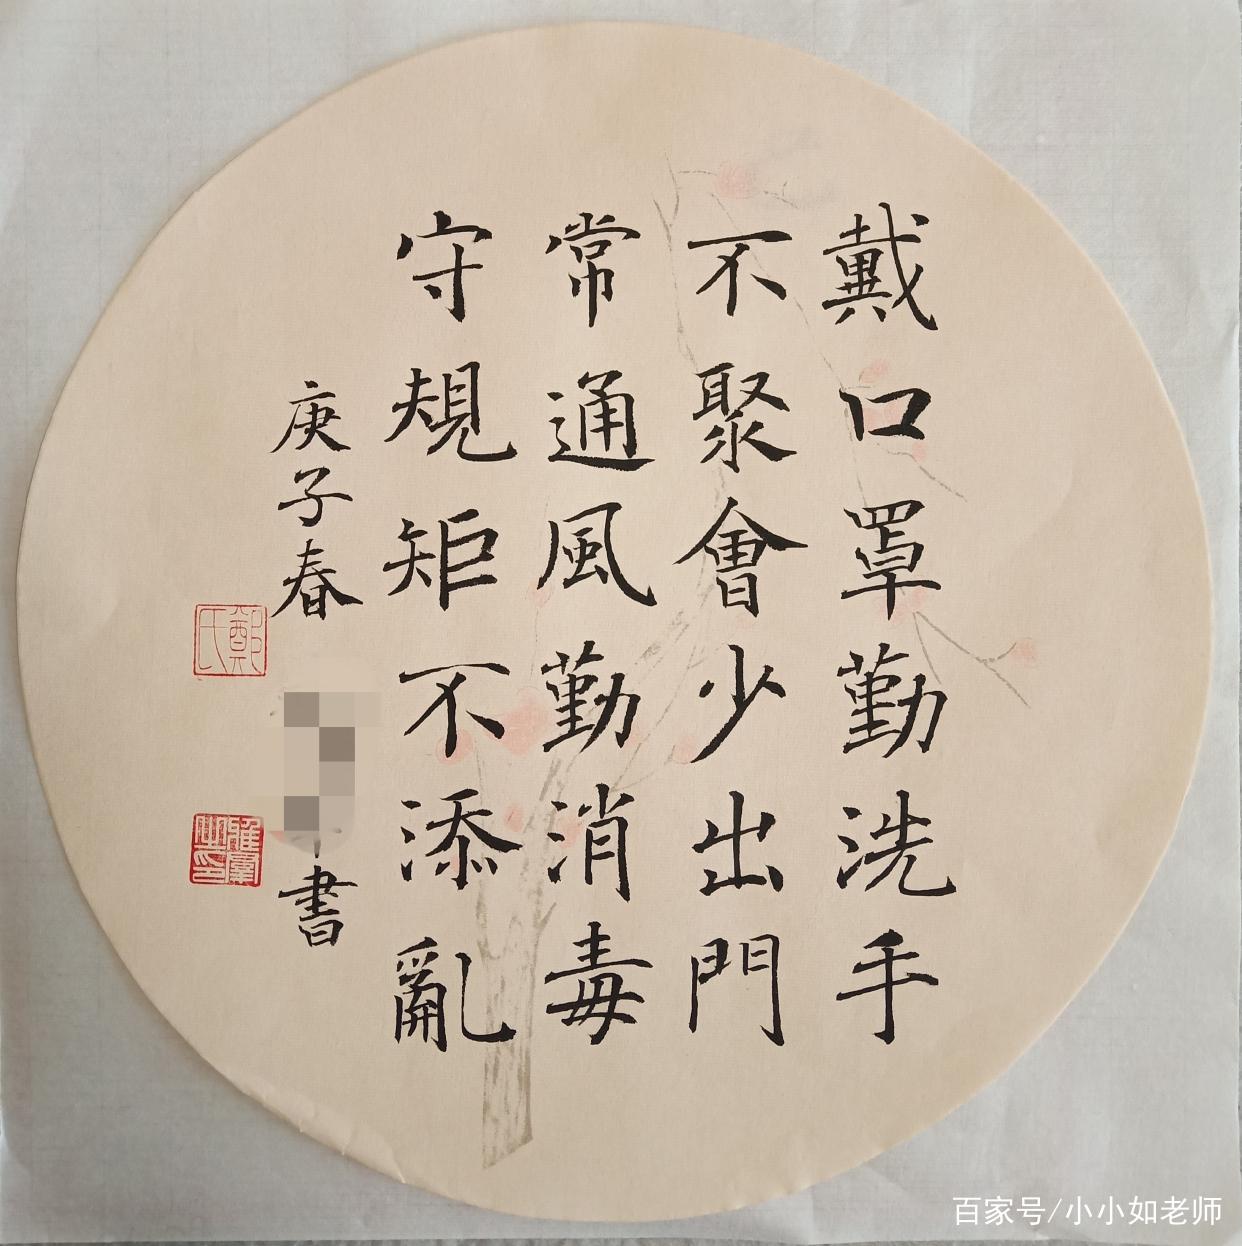 戴口罩勤洗手
不聚會少出門
常通風勤消毒
守規矩不添亂
庚子春
書
鄭氏
百家号/小小如老师